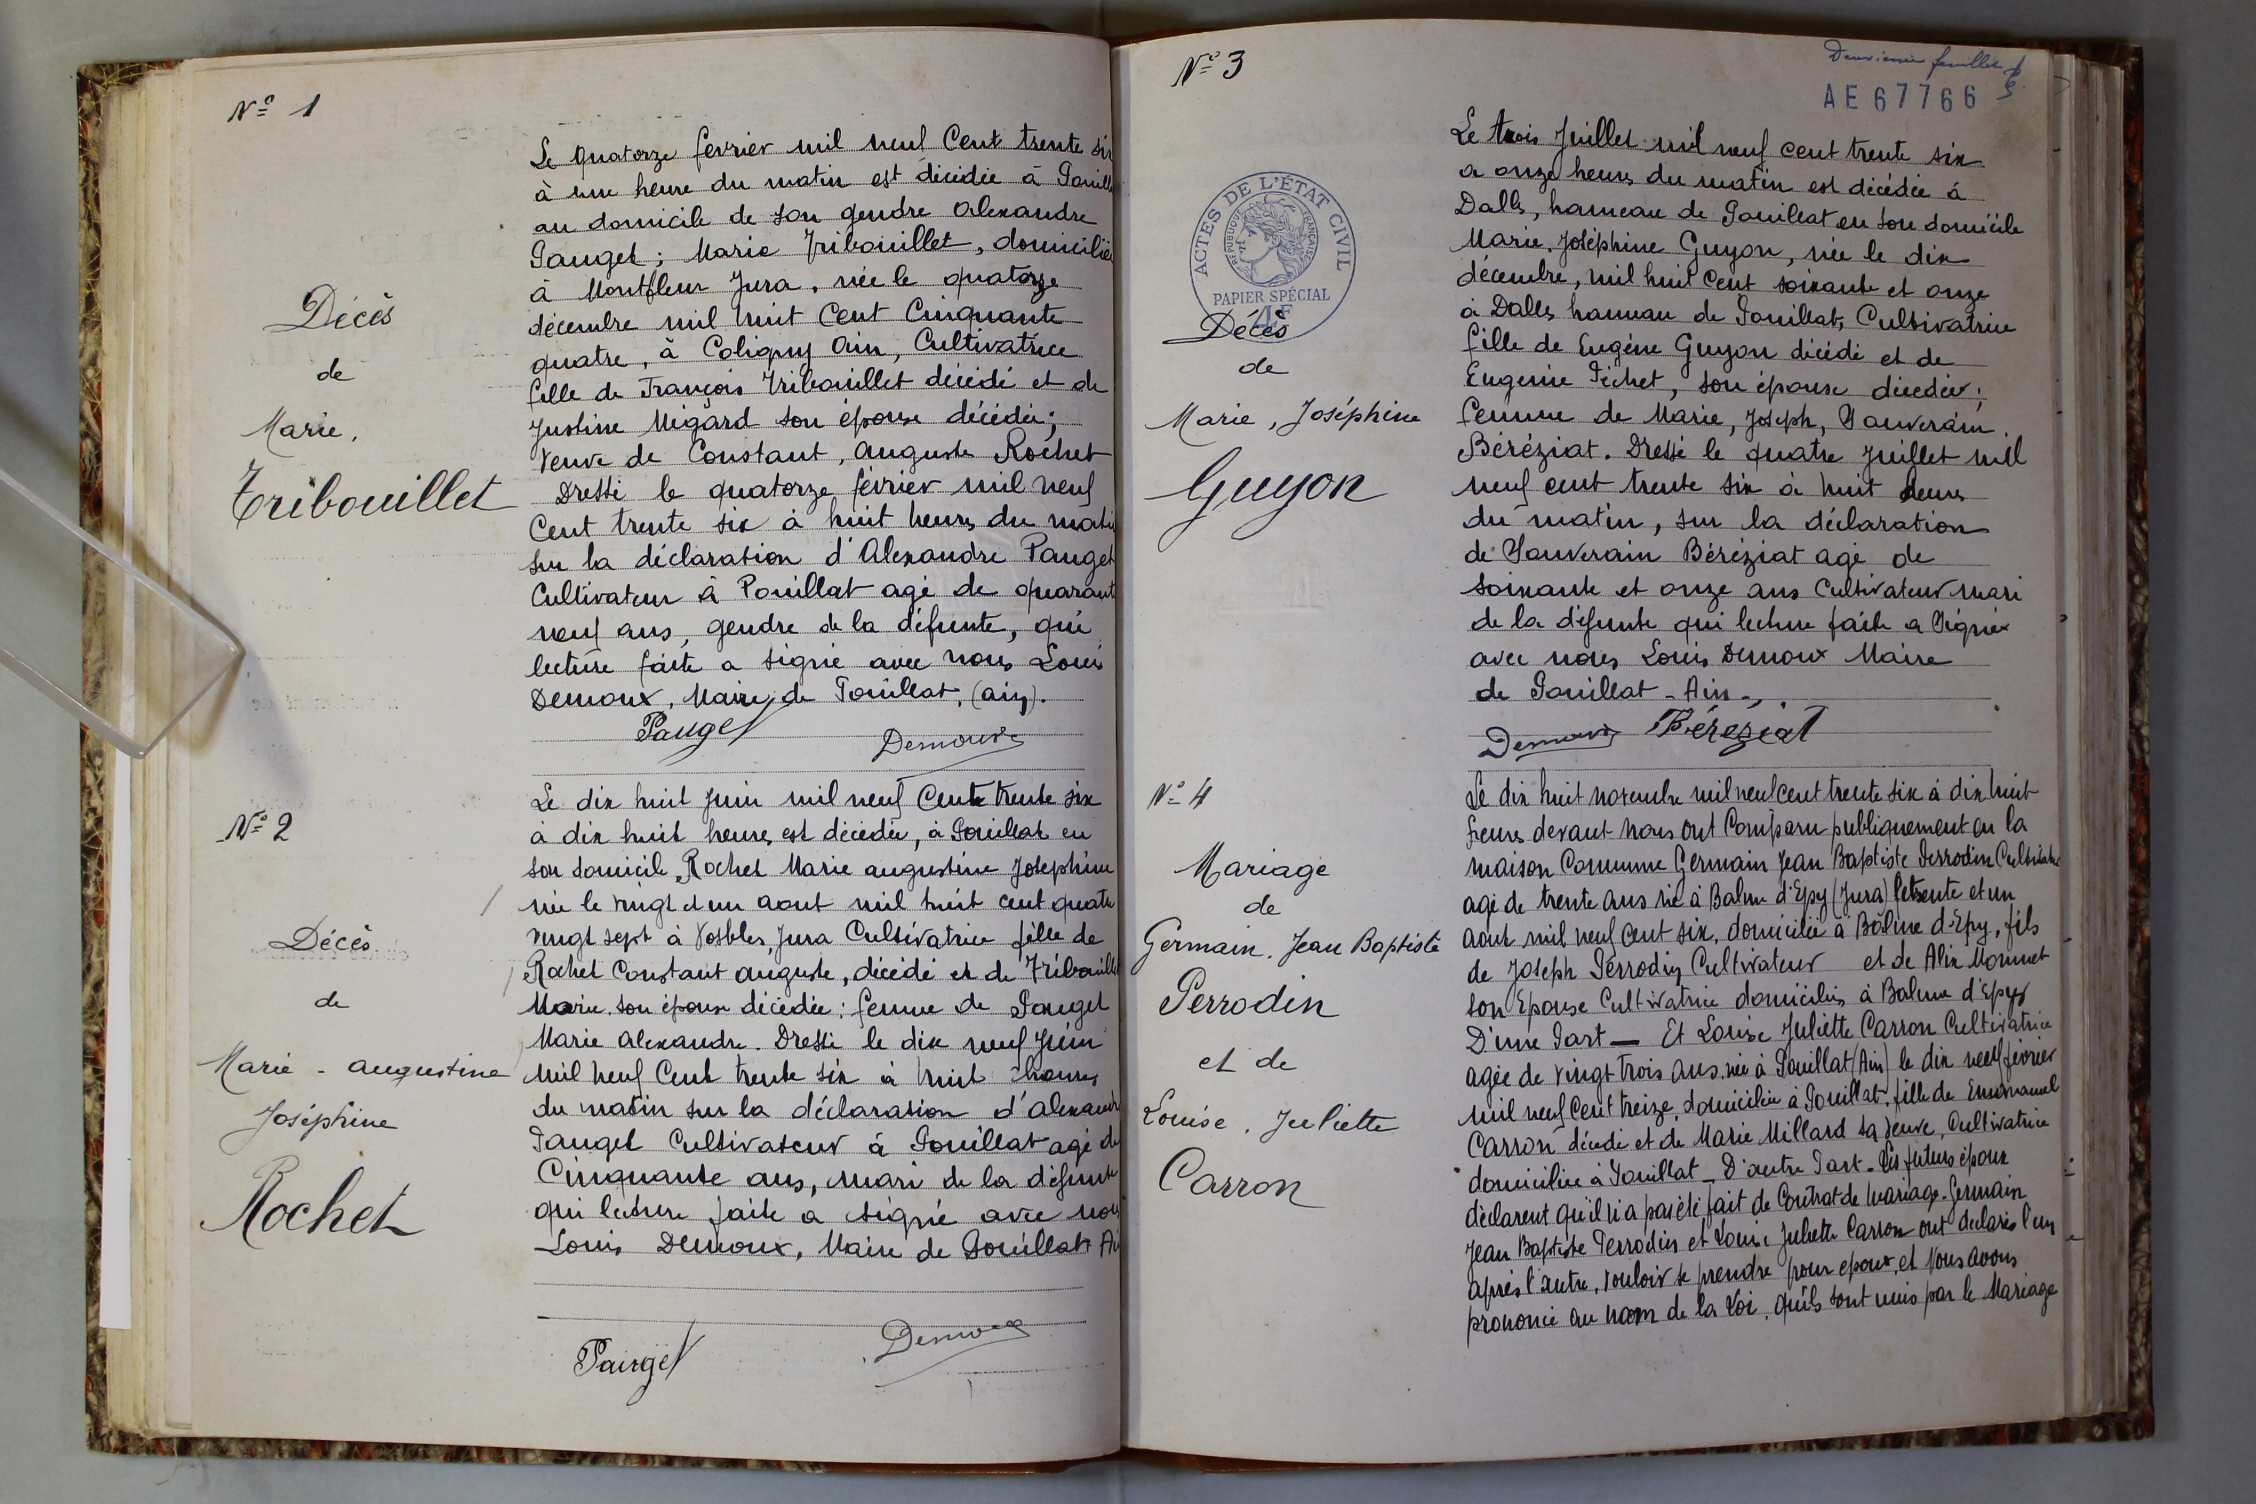 Nº 1
Décès
de
Marie,
Tribouillet
Le quatorze février mil neuf Cent trente six
à une heure du matin est décédée à Pouillat
au domicile de son gendre Alexandre
Pauget; Marie Tribouillet, domiciliée
à Montfleur Jura, née le quatorze
décembre mil huit Cent Cinquante
quatre, à Coligny Ain, Cultivatrice
fille de François Tribouillet décédé et de
Justine Mégard son épouse décédée;
Veuve de Constant, Auguste Rochet
Dressé le quatorze février mil neuf
Cent trente six à huit heures du matin
sur la déclaration d'Alexandre Pauget
Cultivateur à Pouillat agé de quarante
neuf ans, gendre de la défunte, qui
lecture faite a signé avec nous Louis
Demoux, Maire de Pouillat, (ain).
Pauget Demoux
Nº 2
Décès
de
Marie - Augustine
Joséphine
Rochet
Le dix huit Juin mil neuf Cent trente six
à dix huit heures est décédée, à Pouillat en
son domicile, Rochet Marie augustine Josephine
née le vingt et un aout mil huit cent quatre
vingt sept à Vosbles, Jura Cultivatrice fille de
Rochet Constant auguste, décédé et de Tribouillet
Marie son épouse décédée: femme de Pauget
Marie Alexandre. Dressé le dix neuf Juin
Mil Neuf Cent trente six à huit heures
du matin sur la déclaration d'Alexandre
Pauget Cultivateur à Pouillat agé de
Cinquante ans, mari de la défunte
qui lecture faite a signé avec nous
Louis Demoux, Maire de Pouillat Ain
Pauget Demoux
Nº 3
Deuxième feuillet
AE 67766
ACTES DE L'ÉTAT CIVIL
RÉPUBLIQUE FRANÇAISE
PAPIER SPÉCIAL
4F
Décès
de
Marie, Joséphine
Guyon
Le trois Juillet mil neuf cent trente six
a onze heures du matin est décédée à
Dalles, hameau de Pouillat en son domicile
Marie, Joséphine Guyon, née le dix
décembre, mil huit Cent soixante et onze
à Dalles hameau de Pouillat, Cultivatrice
fille de Eugène Guyon décédé et de
Eugenie Péchet, son épouse décédée;
femme de Marie, Joseph, Sauverain
Béréziat. Dressé le quatre Juillet mil
neuf cent trente six à huit heures
du matin, sur la déclaration
de Sauverain Béréziat agé de
soixante et onze ans Cultivateur mari
de la défunte qui lecture faite a signé
avec nous Louis Demoux Maire
de Pouillat - Ain -,
Demoux Béreziat
Nº 4
Mariage
de
Germain, Jean Baptiste
Perrodin
et de
Louise, Juliette
Carron
Le dix huit novembre mil neuf cent trente six à dix huit
heures devant nous ont Comparu publiquement en la
maison Commune Germain Jean Baptiste Perrodin Cultivateur
agé de trente ans né à Balme d'Epy (Jura) le trente et un
aout mil neuf Cent six, domicilié à Balme d'Epy, fils
de Joseph Perrodin Cultivateur et de Alix Monnet
son Epouse Cultivatrice domiciliés à Balme d'Epy
D'une Part — Et Louise Juliette Carron Cultivatrice
agée de vingt trois ans, née à Pouillat (Ain) le dix neuf février
mil neuf Cent treize, domiciliée à Pouillat, fille de Emmanuel
Carron décédé et de Marie Millard sa veuve, Cultivatrice
domiciliée à Pouillat - D'autre Part. Les futurs époux
déclarent qu'il n'a pas été fait de Contrat de mariage. Germain
Jean Baptiste Perrodin et Louise Juliette Carron ont déclarés l'un
après l'autre, vouloir se prendre pour epoux, et Nous avons
prononcé au nom de la Loi, qu'ils sont unis par le Mariage